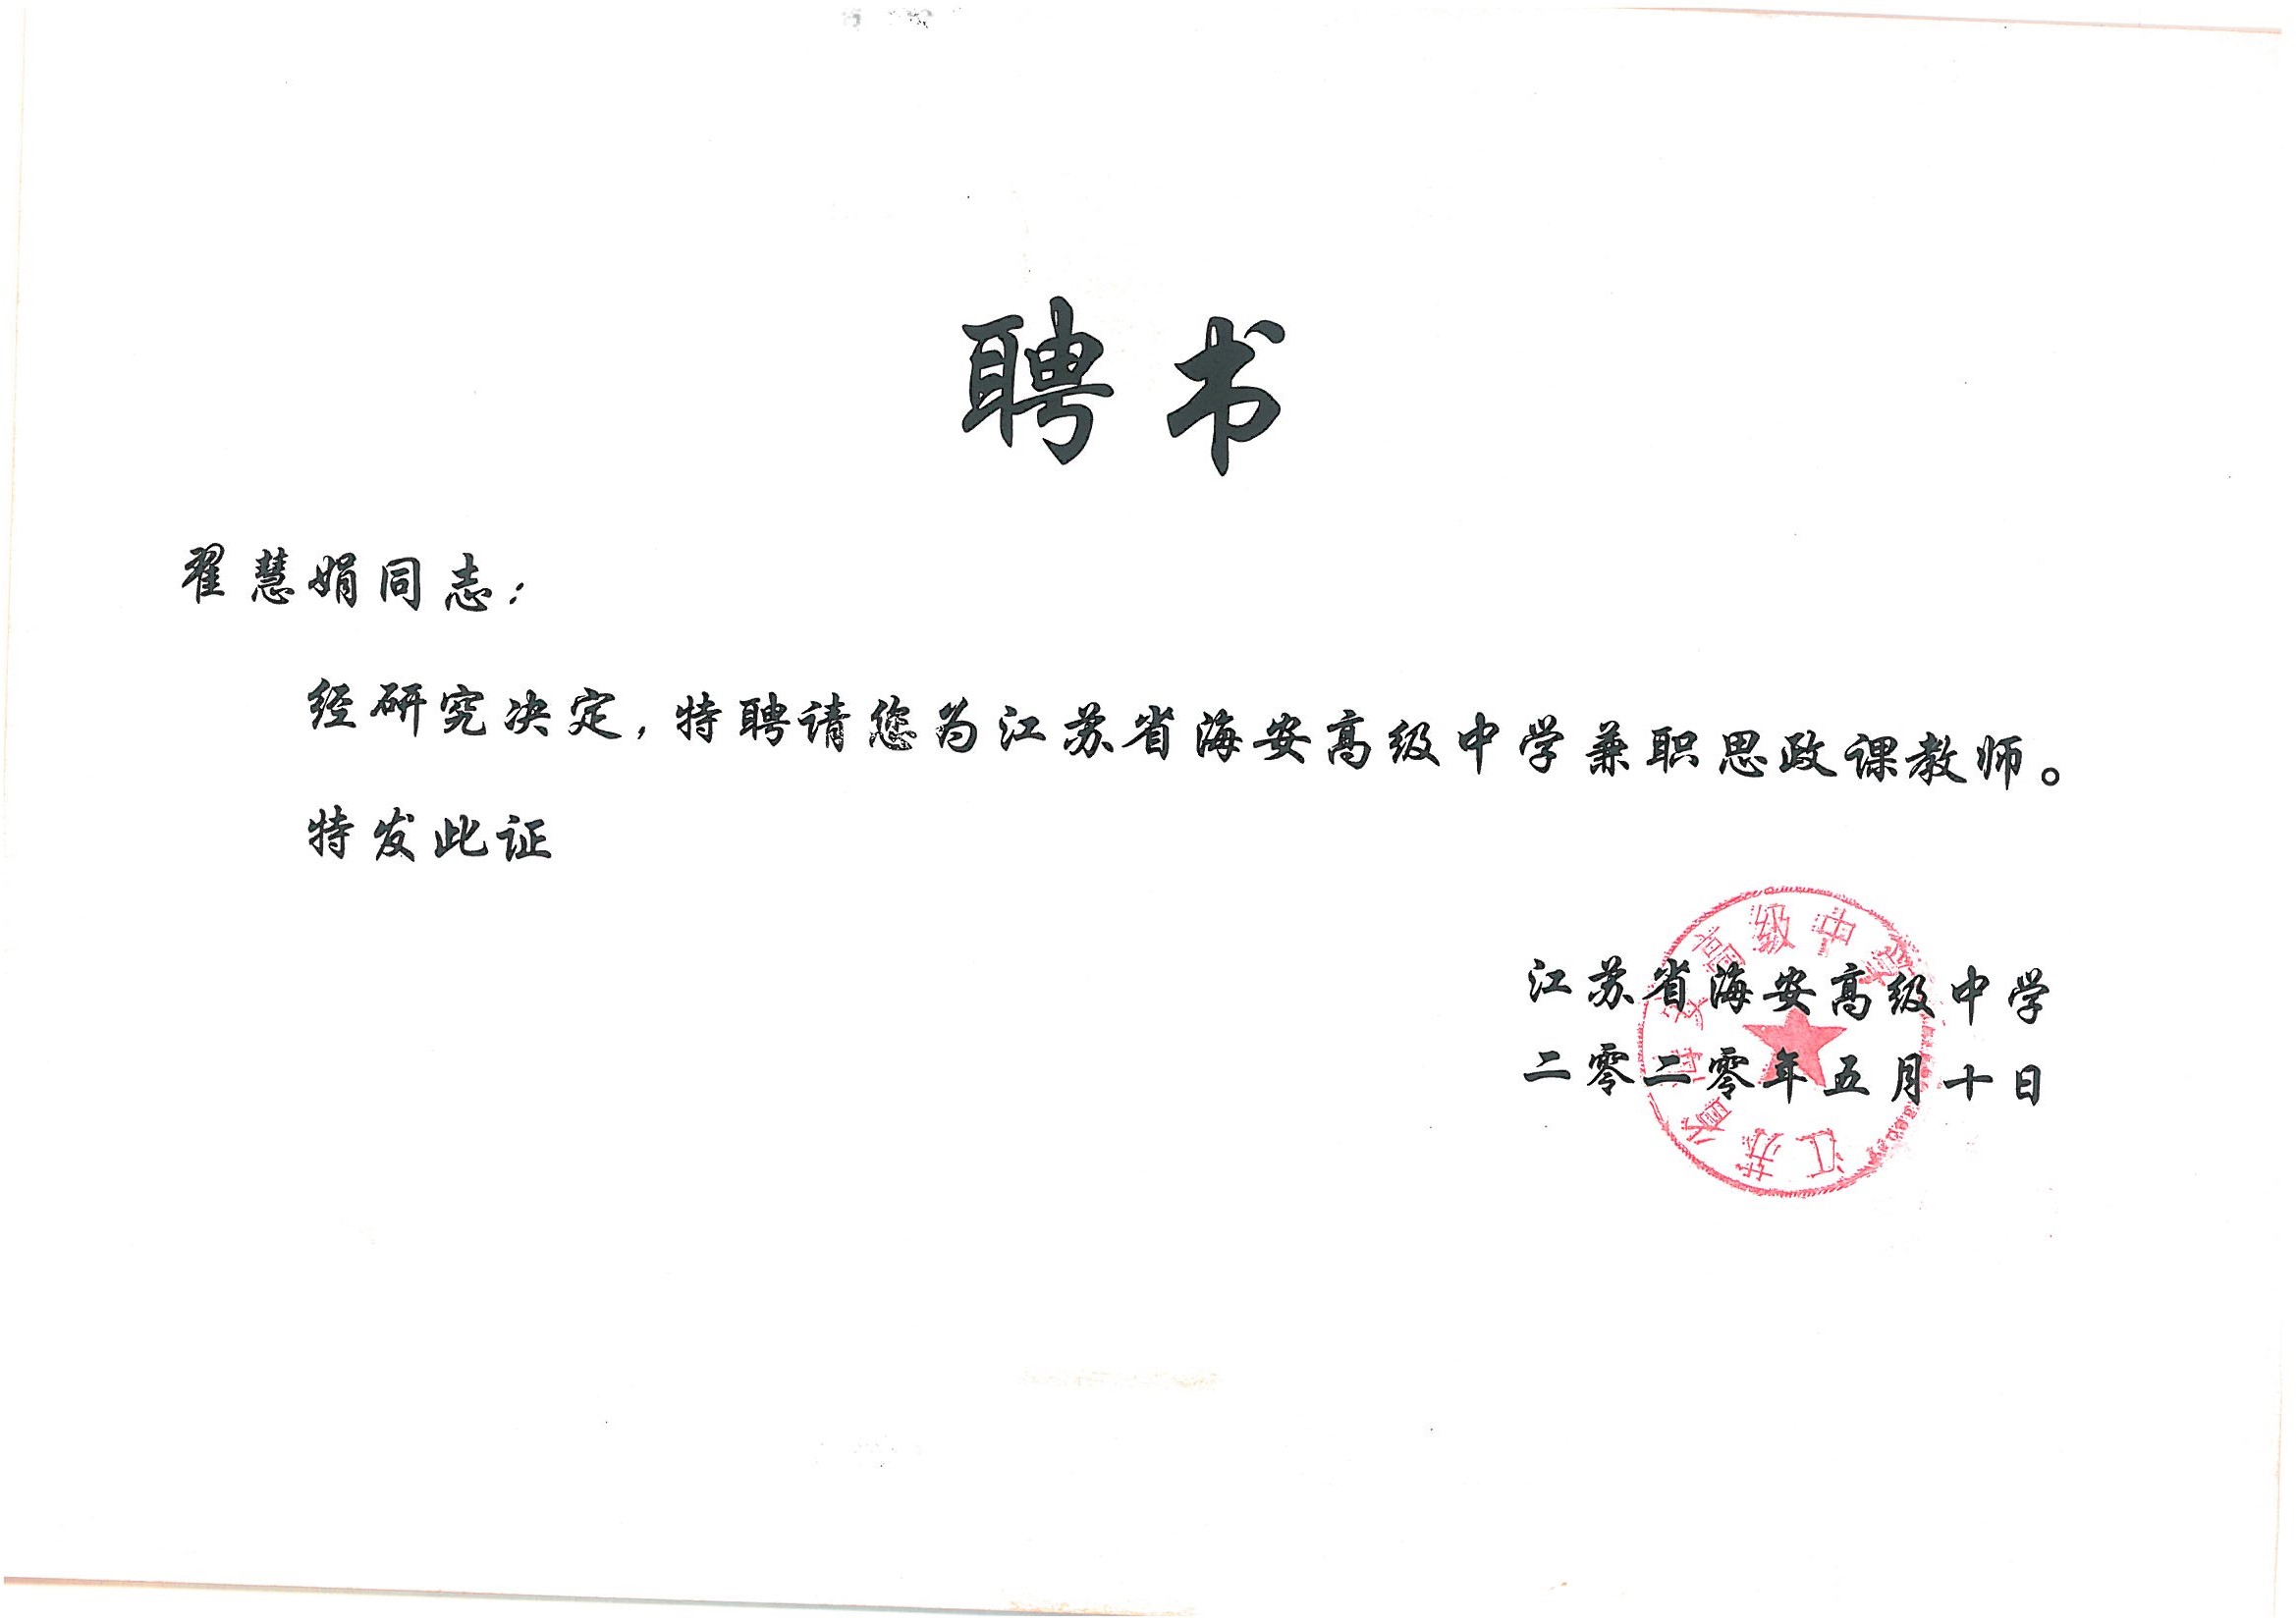 聘书
翟慧娟同志：
经研究决定，特聘请您为江苏省海安高级中学兼职思政课教师。
特发此证
江苏省海安高级中学
二零二零年五月十日
江苏省海安高级中学